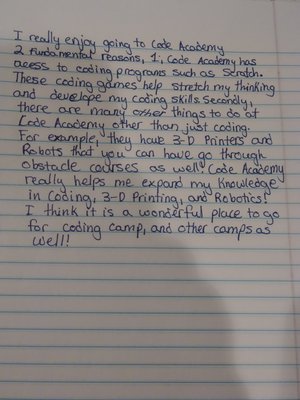 I really enjoy going to Code Academy
2 fundamental reasons, 1., Code Academy has
acess to coding programs such as Scratch.
These coding games help stretch my thinking
and develope my coding skills. Secondly,
there are many other things to do at
Code Academy other than just coding.
For example, they have 3-D Printers and
Robots that you can have go through
obstacle courses as well. Code Academy
really helps me expand my knowledge
in Coding, 3-D Printing, and Robotics!
I think it is a wonderful place to go
for coding camp, and other camps as
well!